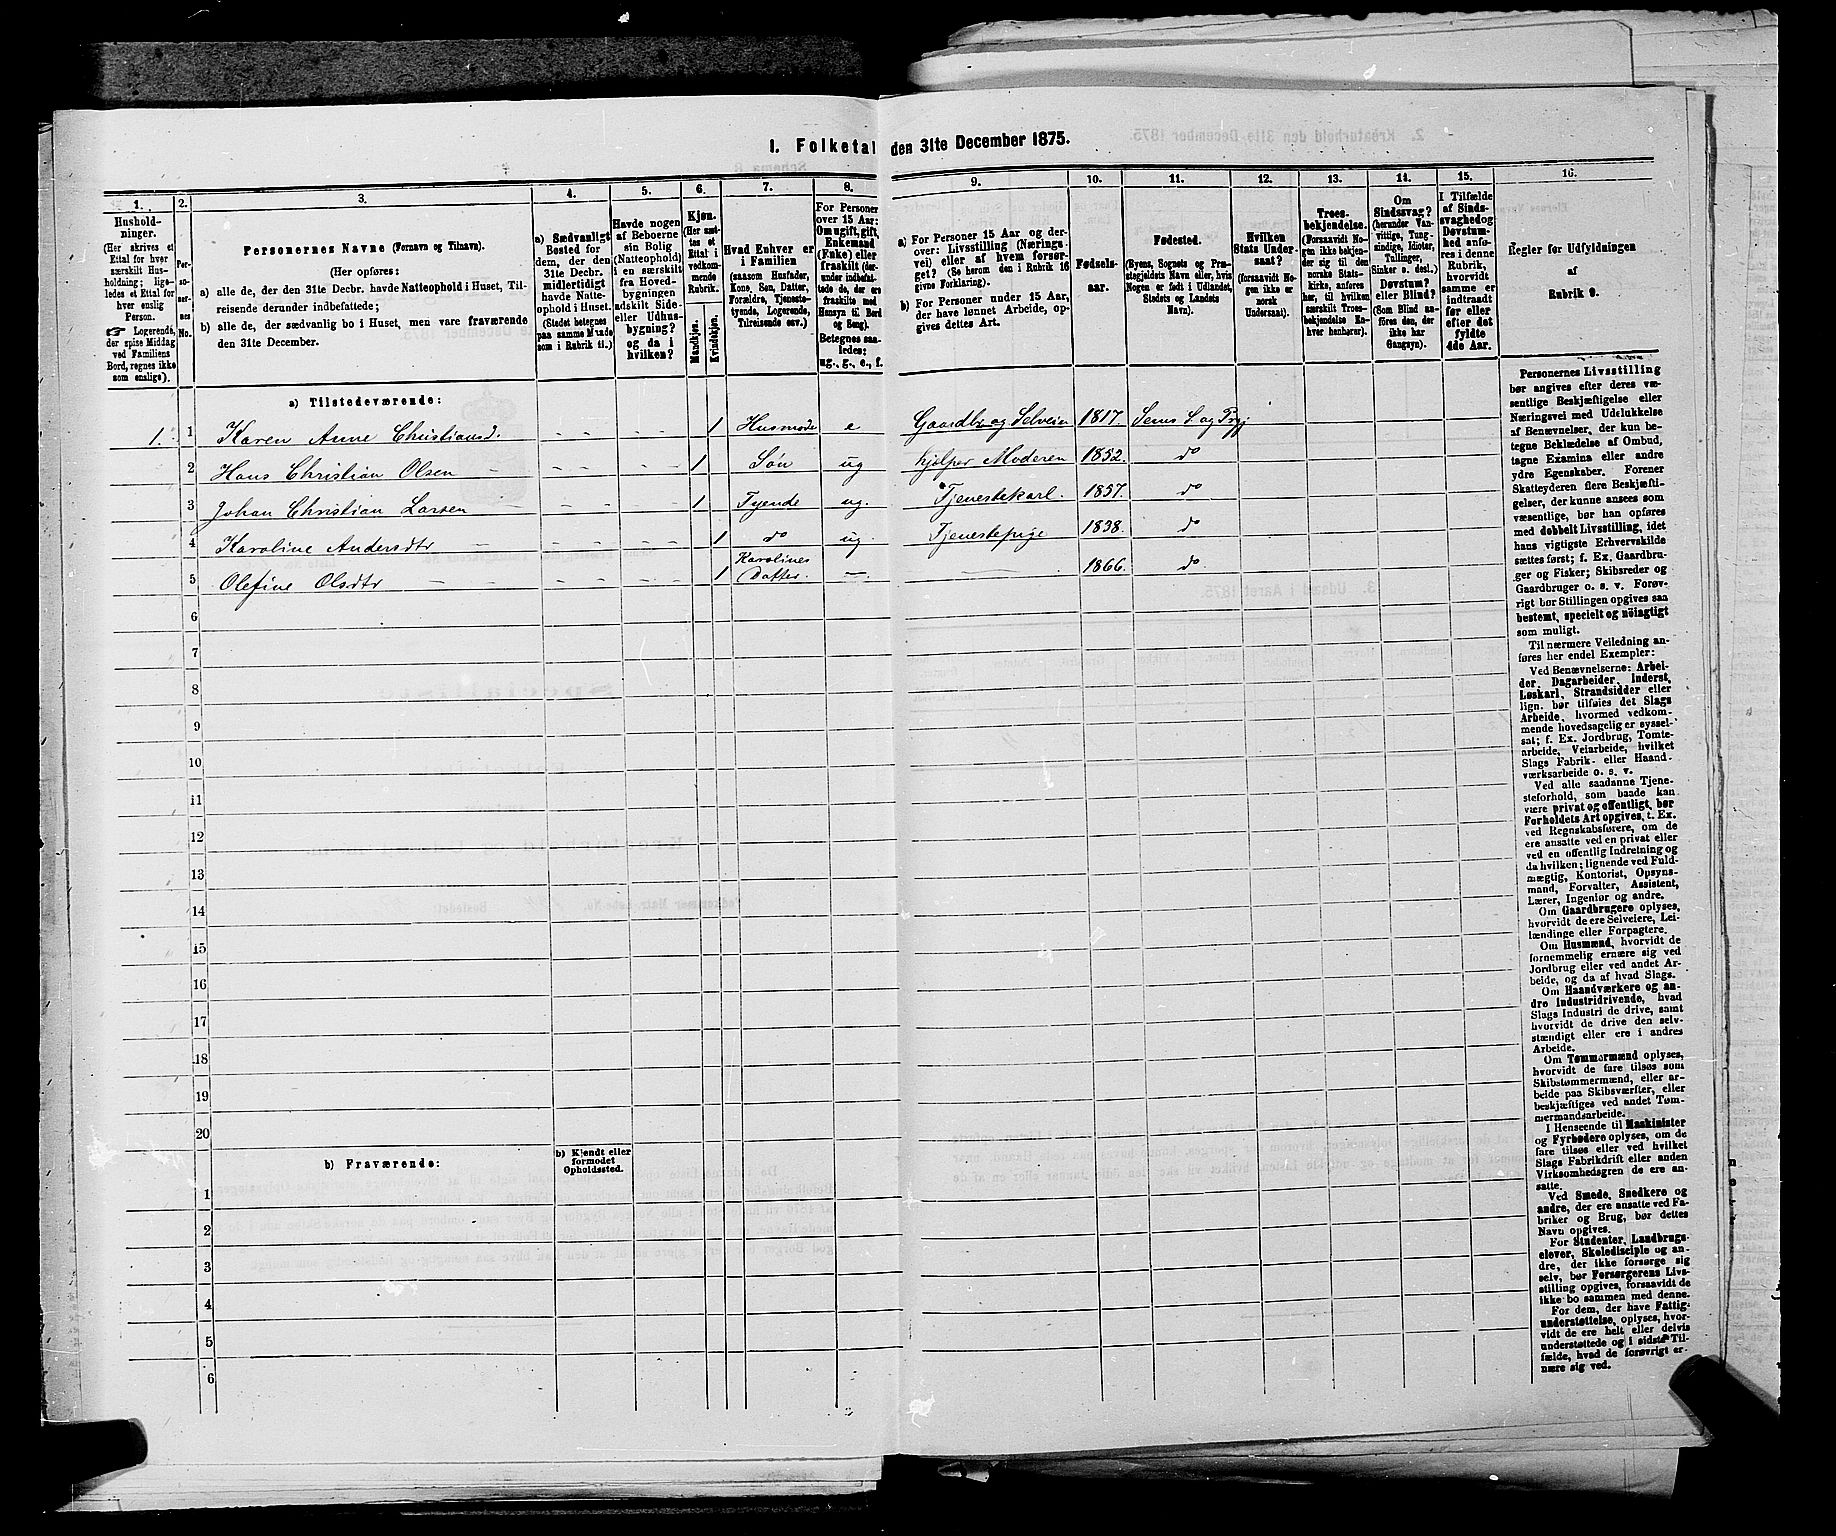 1. Folketal den 31te December 1875.
1.
Hushold-
ninger.
(Her skrives et
Ettal for hver
særskilt Hus-
holdning; lige-
ledes et Ettal for
hver enslig
Person.
☞ Logerende,
der spise Middag
ved Familiens
Bord, regnes ikke
som enslige).
2.
Per-
so-
ner-
nes
No.
3.
Personernes Navne (Fornavn og Tilnavn).
(Her opføres:
a) alle de, der den 31te Decbr. havde Natteophold i Huset, Til-
reisende derunder indbefattede;
b) alle de, der sædvanlig bo i Huset, men vare fraværende
den 31te December.
4.
a) Sædvanligt
Bosted for
dem, der den
31te Decbr.
midlertidigt
havde Natte-
ophold i Huset.
(Stedet betegnes
paa samme Maade
som i Rubrik 11.)
5.
Havde nogen
af Beboerne
sin Bolig
(Natteophold)
i en særskilt
fra Hoved-
bygningen
adskilt Side-
eller Udhus-
bygning?
og da i
hvilken?
6.
Kjøn.
(Her sæt-
tes et
Ettal i
vedkom-
mende
Rubrik.
Mandkjøn.
Kvindekjøn.
7.
Hvad Enhver er
i Familien
(saasom Husfader,
Kone, Søn, Datter,
Forældre, Tjeneste-
tyende, Logerende,
Tilreisende osv.)
8.
For Personer
over 15 Aar:
Om ugift, gift,
Enkemand
(Enke) eller
fraskilt (der-
under indbefat-
tede de, der ere
fraskilte med
Hensyn til Bord
og Seng).
Betegnes saa-
ledes:
ug., g., e., f.
9.
a) For Personer 15 Aar og der-
over: Livsstilling (Nærings-
vei) eller af hvem forsør-
get? (Se herom den i Rubrik 16
givne Forklaring).
b) For Personer under 15 Aar,
der have lønnet Arbeide, op-
gives dettes Art.
10.
Fødsels-
aar.
11.
Fødested.
(Byens, Sognets og Præ-
stegjeldets Navn eller, hvis
Nogen er født i Udlandet,
Stedets og Landets
Navn).
12.
Hvilken
Stats Under-
saat?
(forsaavidt No-
gen ikke er
norsk
Undersaat).
13.
Troes-
bekjendelse.
(Forsaavidt No-
gen ikke bekjen-
der sig til den
norske Stats-
kirke, anføres
her, til hvilken
særskilt Troes-
bekjendelse En-
hver henhører).
14.
Om
Sindssvag?
(herunder Van-
vittige, Tung-
sindige, Idioter,
Tullinger,
Sinker o. desl.)
Døvstum?
eller Blind?
(Som Blind an-
føres den, der
ikke har
Gangsyn).
15.
I Tilfælde
af Sinds-
svaghed og
Døvstum-
hed anfø-
res i denne
Rubrik,
hvorvidt
samme er
indtraadt
før eller
efter det
fyldte
4de Aar.
16.
Regler for Udfyldningen
af
Rubrik 9.
a) Tilstedeværende:
1. 1 Karen Anne Christiansd. - - - 1 Husmode e Gaardbr. og Selveier 1817. Sems S. og Prgj
2 Hans Christian Olsen - - - 1 Søn ug hjælper Moderen 1852. do
3 Johan Christian Larsen - - - 1 Tyende ug. Tjenestekarl. 1857. do
4 Karoline Andersdtr - - - 1 do ug. Tjenestepige 1838. do
5 Olefine Olsdtr - - - 1 Karolines
Datter. — — 1866. do
6
7
8
9
10
11
12
13
14
15
16
17
18
19
20
b) Fraværende:
b) Kjendt eller
formodet
Opholdssted.
1
2
3
4
5
6
Personernes Livsstilling
bør angives efter deres væ-
sentlige Beskjæftigelse eller
Næringsvei med Udelukkelse
af Benævnelser, der kun be-
tegne Beklædelse af Ombud,
tagne Examina eller andre
ydre Egenskaber. Forener
Skatteyderen flere Beskjæfti-
gelser, der kunne ansees som
væsentlige, bør han opføres
med dobbelt Livsstilling, idet
hans vigtigste Erhvervskilde
sættes først; f. Ex. Gaardbru-
ger og Fisker; Skibsreder og
Gaardbruger o. s. v. Forøv-
rigt bør Stillingen opgives saa
bestemt, specielt og nöiagtigt
som muligt.
Til nærmere Veiledning an-
føres her endel Exempler:
Ved Benævnelserne: Arbei-
der, Dagarbeider, Inderst,
Løskarl, Strandsidder eller
lign. bør tilføies det Slags
Arbeide, hvormed vedkom-
mende hovedsagelig er syssel-
sat; f. Ex. Jordbrug, Tomte-
arbeide, Veiarbeide, hvilket
Slags Fabrik- eller Haand-
værksarbeide o. s. v.
Ved alle saadanne Tjene-
steforhold, som baade kan
være privat og offentligt, bør
Forholdets Art opgives, t. Ex.
ved Regnskabsførere, om de
ere ansatte ved en privat eller
ved en offentlig Indretning og
da hvilken; lignende ved Fuld-
mægtig, Kontorist, Opsyns-
mand, Forvalter, Assistent,
Lærer, Ingeniør og andre.
Om Gaardbrugere oplyses,
hvorvidt de ere Selveiere, Lei-
lændinge eller Forpagtere.
Om Husmænd, hvorvidt de
fornemmelig ernære sig ved
Jordbrug eller ved andet Ar-
beide, og da af hvad Slags.
Om Haandværkere og an-
dre Industridrivende, hvad
Slags Industri de drive, samt
hvorvidt de drive den selv-
stændigt eller ere i andres
Arbeide.
Om Tømmermænd oplyses,
hvorvidt de fare tilsøs som
Skibstømmermænd, eller ar-
beide paa Skibsværfter, eller
beskjæftiges ved andet Tøm-
mermandsarbeide.
I Henseende til Maskinister
og Fyrbødere oplyses, om de
fare tilsøs eller ved hvilket
Slags Fabrikdrift eller anden
Virksomhedsgren de ere an-
satte.
Ved Smede, Snedkere og
andre, der ere ansatte ved Fa-
briker og Brug, bør dettes
Navn opgives.
For Studenter, Landbrugs-
elever, Skoledisciple og an-
dre, der ikke forsørge sig
selv, bør Forsørgerens Livs-
stilling opgives, forsaavidt de
ikke bo sammen med denne.
For dem, der have Fattig-
understøttelse, oplyses, hvor-
vidt de ere helt eller delvis
understøttede og i sidste Til-
fælde, hvad de forøvrigt er-
nære sig ved.